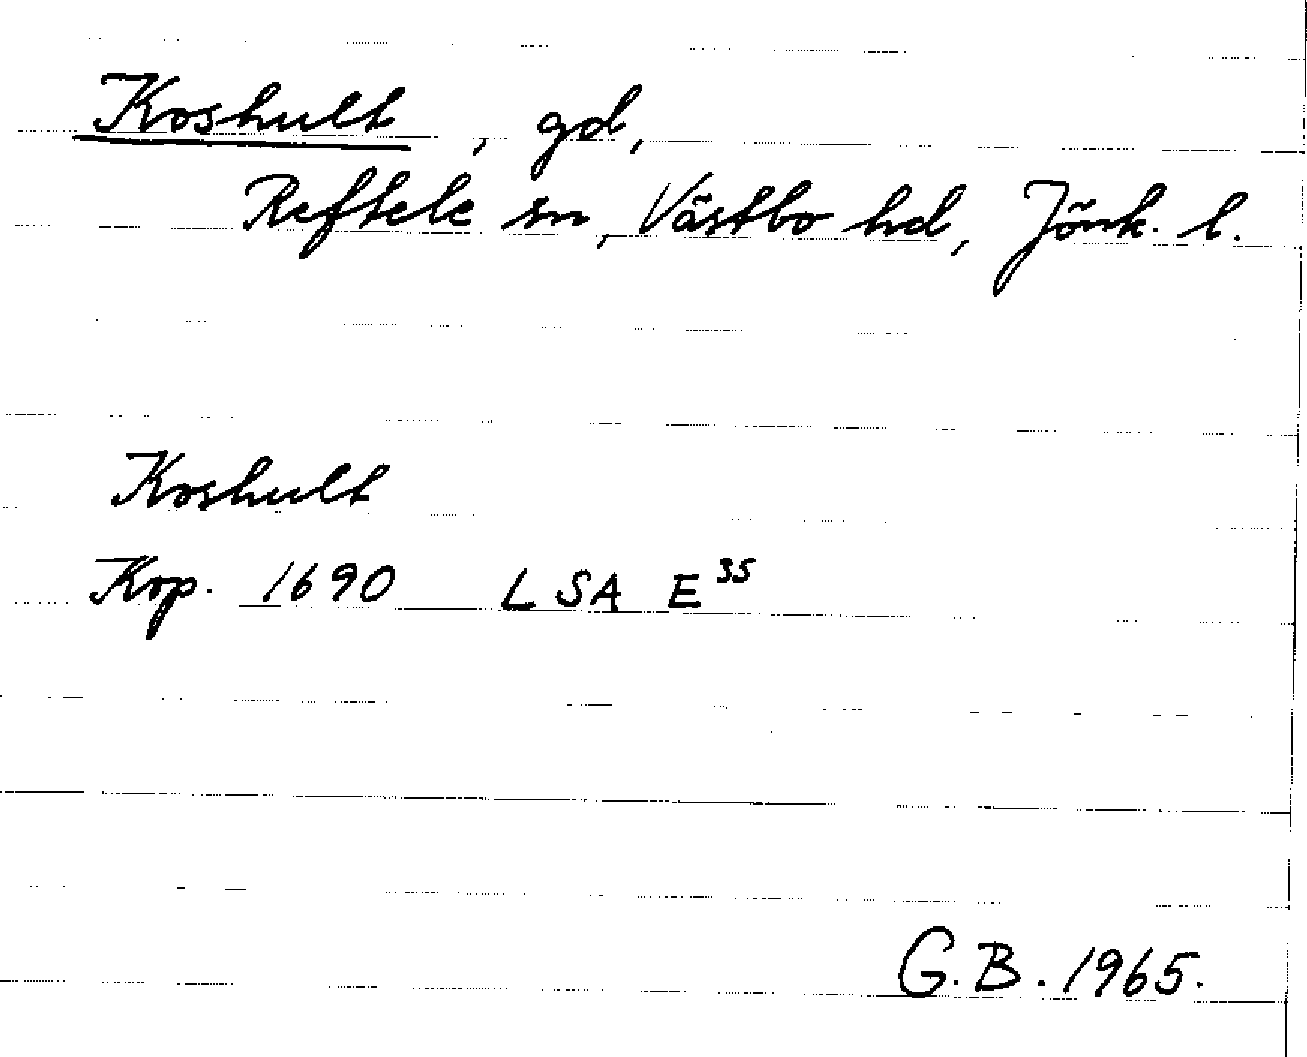 Koshult, gd,
Reftele sn, Västbo hd, Jönk. l.
Koshult
Kop. 1690 LSA E³⁵
G.B. 1965.